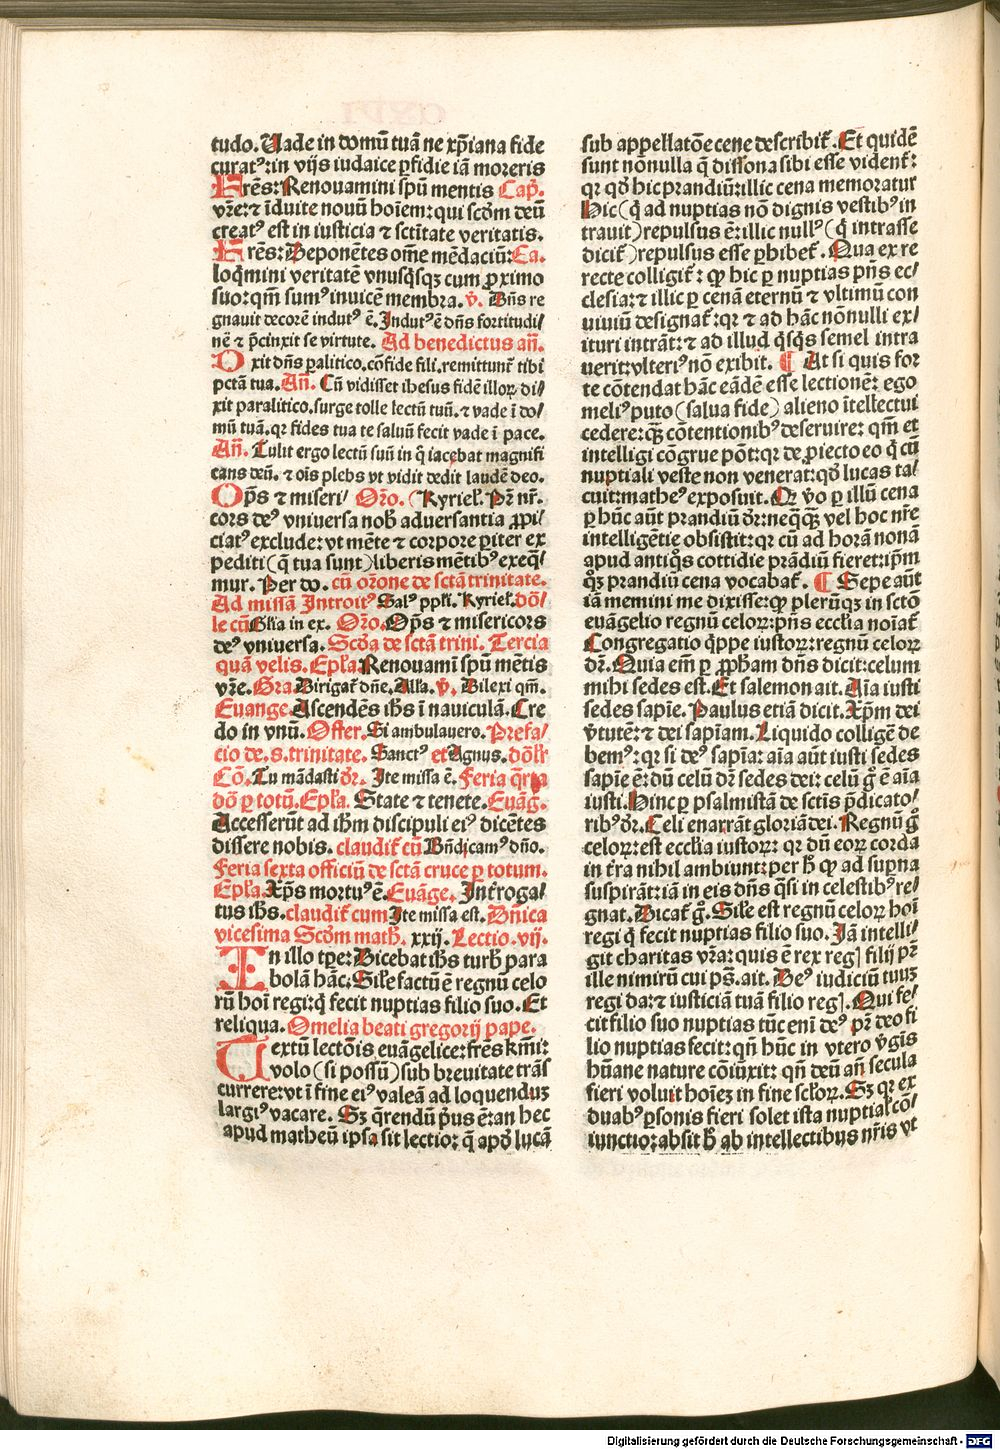 tudo. Uade in domū tuā ne xp̄iana fide
curatꝰ: in vijs iudaice ꝑfidie iā moreris
Frēs: Renouamini spū mentis Cap̄.
vr̄e: ⁊ īduite nouū hoīem: qui scd̄m deū
creatꝰ est in iusticia ⁊ sctītate veritatis.
Frēs: Deponētes om̄e mēdaciū: Ca.
loq̄mini veritatē vnusq̄sqꝫ cum ꝓximo
suo: qm̄ sumꝰ inuicē membra. v̄. Dn̄s re
gnauit decorē indutꝰ ē. Indutꝰ ē dn̄s fortitudi/
nē ⁊ p̄cinxit se virtute. Ad benedictus an̄.
Dixit dn̄s ꝑalitico. cōfide fili. remittunt̄ tibi
pctā tua. An̄. Cū vidisset ihesus fidē illoꝝ di/
xit paralitico. surge tolle lectū tuū. ⁊ vade ī do/
mū tuā. qꝛ fides tua te saluū fecit vade ī pace.
An̄. Tulit ergo lectū suū in q̄ iacebat magnifi
cans deū. ⁊ oīs plebs vt vidit dedit laudē deo.
Op̄s ⁊ miseri/ Or̄o. (Kyriel. Pr̄ nr̄.
cors deꝰ vniuersa nob̄ aduersantia ꝓpi/
ciatꝰ exclude: vt mēte ⁊ corpore ꝑiter ex
pediti (q̄ tua sunt) liberis mētibꝰ exeq̄/
mur. Per do. cū or̄one de sctā trinitate.
Ad missā Introitꝰ Salꝰ ppłi. Kyriel. dō/
le cū Glīa in ex. Or̄o. Op̄s ⁊ misericors
deꝰ vniuersa. Scd̄a de sctā trini. Tercia
quā velis. Epła. Renouamī spū mētis
vr̄e. Gra. Dirigat̄ dn̄e. Alła. v̄. Dilexi qm̄.
Euange. Ascendēs ihs̄ ī nauiculā. Cre
do in vnū. Offer. Si ambulauero. Prefa/
cio de. s. trinitate. Sanctꝰ et Agnus. dōłr
Cō. Tu mādasti dr̄. Ite missa ē. Feria q̄rta
dō ꝑ totū. Epła. State ⁊ tenete. Euāḡ.
Accesserūt ad ihm̄ discipuli eiꝰ dicētes
dissere nobis. claudit̄ cū Bn̄dicamꝰ dn̄o.
Feria sexta officiū de sctā cruce ꝑ totum.
Epła. Xp̄s mortuꝰ ē. Euāge. Int̄roga/
tus ihs̄. claudit̄ cum Ite missa est. Dn̄ica
vicesima Scd̄m math̄. xxij. Lectio. vij.
In illo tp̄e: Dicebat ihs̄ turb̄ para
bolā hāc: Sił̄e factū ē regnū celo
rū hoī regi: q̄ fecit nuptias filio suo. Et
reliqua. Omelia beati gregorij pape.
Textū lectōis euāgelice: fr̄es km̄i:
volo (si possū) sub breuitate trās
currere: vt ī fine eiꝰ valeā ad loquenduꝫ
largiꝰ vacare. Sꝫ q̄rendū p̄us ē: an hec
apud matheū ipsa sit lectio: q̄ apd̄ lucā
sub appełłatōe cene describit̄. Et quidē
sunt nōnulla q̄ dissona sibi esse vident̄:
qꝛ qd̄ hic prandiū: illic cena memoratur
Hic (q̄ ad nuptias nō dignis vestibꝰ in
trauit) repulsus ē: illic nullꝰ (q̄ intrasse
dicit̄) repulsus esse ꝑhibet̄. Qua ex re
recte colligit̄: ꝙ hic ꝑ nuptias p̄ns ec/
clesia: ⁊ illic ꝑ cenā eternū ⁊ vltimū con
uiuiū designat̄: qꝛ ⁊ ad hāc nōnulli ex/
ituri intrāt: ⁊ ad illud q̄sq̄s semel intra
uerit: vlteriꝰ nō exibit. ¶ At si quis for
te cōtendat hāc eādē esse lectionē: ego
meliꝰ puto (salua fide) alieno ītellectui
cedere: q̄ꝫ cōtentionibꝰ deseruire: qm̄ et
intelligi cōgrue pōt: qꝛ de ꝓiecto eo q̄ cū
nuptiali veste non venerat: qd̄ lucas ta/
cuit: matheꝰ exposuit. Qꝛ v̄o ꝑ illū cena
ꝑ hūc aūt prandiū dr̄: neq̄q̄ꝫ vel hoc nr̄e
intelligētie obsistit: qꝛ cū ad horā nonā
apud antiq̄s cottidie prādiū fieret: ip̄m
qꝫ prandiū cena vocabat̄. ¶ Sepe aūt
iā memini me dixisse: ꝙ plerūqꝫ in sctō
euāgelio regnū celoꝝ: p̄ns ecclīa noīat̄
Congregatio q̄ppe iustoꝝ: regnū celoꝝ
dr̄. Quia em̄ ꝑ ꝓph̄am dn̄s dicit: celum
mihi sedes est. Et salemon ait. Aīa iusti
sedes sapīe. Paulus etiā dicit. Xp̄m dei
v̄tutē: ⁊ dei sapīam. Liquido colligē de
bemꝰ: qꝛ si deꝰ sapīa: aīa aūt iusti sedes
sapīe ē: dū celū dr̄ sedes dei: celū g̊ ē aīa
iusti. Hinc ꝑ psalmistā de sctis p̄dicato/
ribꝰ dr̄. Celi enarrāt gloriā dei. Regnū g̊
celoꝝ: est ecclīa iustoꝝ: qꝛ dū eoꝝ corda
in t̄ra nihil ambiunt: per h̄ ꝙ ad sup̄na
suspirāt: iā in eis dn̄s q̄si in celestibꝰ re/
gnat. Dicat̄ g̊. Sił̄e est regnū celoꝝ hoī
regi q̄ fecit nuptias filio suo. Iā intelli/
git charitas vr̄a: quis ē rex regꝭ filij pr̄
ille nimirū cui ps̄. ait. Deꝰ iudiciū tuuꝫ
regi da: ⁊ iusticiā tuā filio regꝭ. Qui fe/
cit filio suo nuptias tūc enī deꝰ pr̄ deo fi
lio nuptias fecit: qn̄ hūc in vtero v̄gis
hūane nature cōiūxit: qn̄ deū an̄ secula
fieri voluit hoīeꝫ in fine scłoꝝ. Sꝫ qꝛ ex
duabꝰ ꝑsonis fieri solet ista nuptial̄ cō/
iunctio: absit h̄ ab intellectibus nr̄is vt
Digitalisierung gefördert durch die Deutsche Forschungsgemeinschaft - DFG